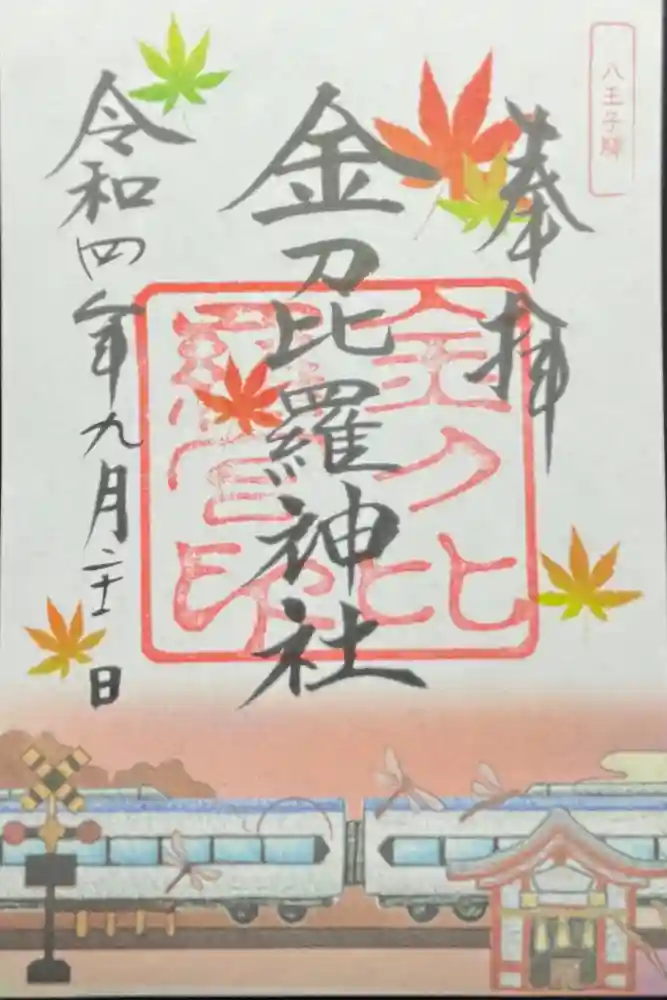 八王子驛
奉拝
金刀比羅神社
金刀比
羅宮印
令和四年九月二十一日